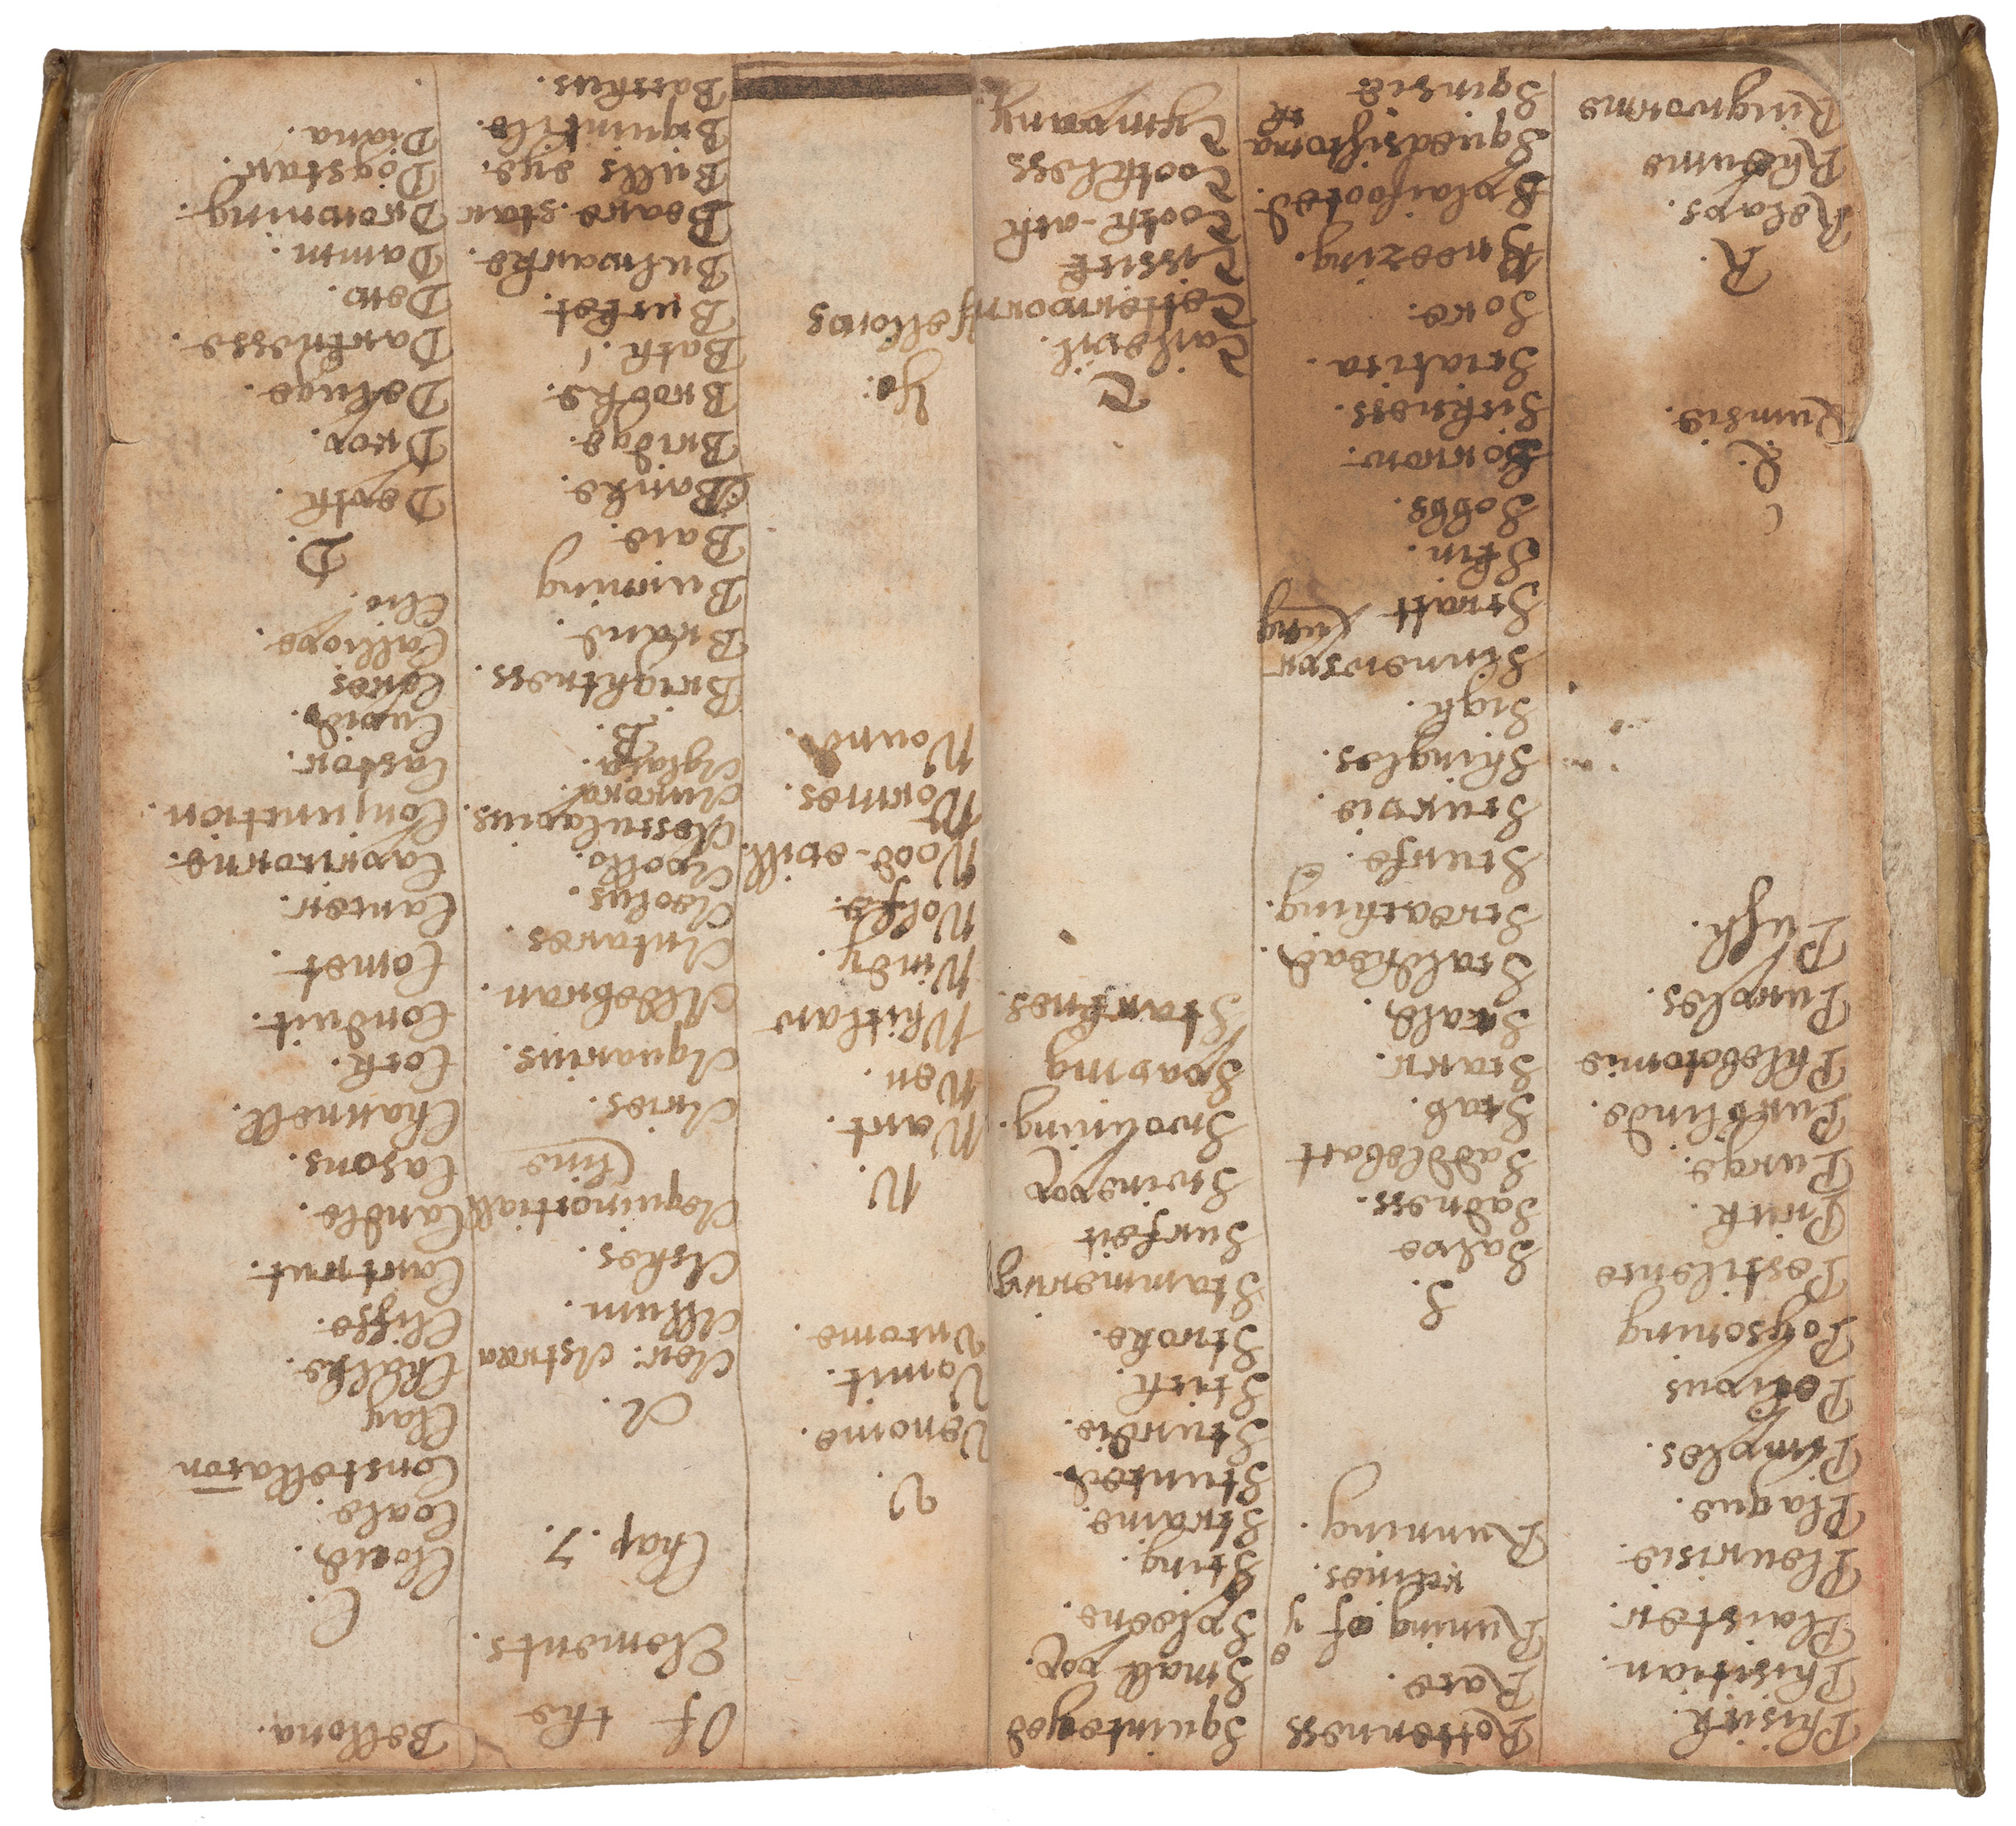 Phisick.
Phisitian.
Plaister.
Pleurisie.
Plague.
Pimples.
Potions
Poysoning
Pestilence
Prick.
Purge.
Purblinde.
Phlebotomie
Purples.
Push.
Q.
Quinsie.
R.
Relaps.
Rheume
Ringworme
Rottenness
Rare.
Runing of ye
reines.
Running.
S.
Salve
Sadness.
Saddleback
Scab.
Scarr.
Scald.
Scaldhead.
Scratching.
Scurfe.
Scurvie.
Shingles.
Sigh.
Scratt
Skin.
Sobbs.
Sorrow.
Sickness.
Sciatica.
Sore.
Sneezing.
Splaifooted.
Squeasistoma
ck
Sqinsie
Squinteyed
Small pox.
Spleene.
Sting.
Straine.
Stunted.
Sturdie.
Stich.
Stroke.
Stammering
Surfeit
Swinepox
Swouning.
Spasma
Starknes.
T
Tetterworm
Tissick
Tooth-ach
Toothless
Tympany
V.
Venome.
Vomit.
Uncome.
W.
Wart.
Wen.
Whitlaw
Windy.
Wolfe.
Wood-evill.
Wormes.
Wound.
Ye:
Yellows
Of the
Elements.
Chap. 7.
A.
Aer: Astraea
Allum.
Ashes.
Aequinoctiall
line
Aries.
Aquarius.
Aldebran.
Antares
Aeolus.
Apollo.
Aesculapius.
Aurora.
Aglaia.
B.
Brightness.
Brand.
Burning
Baie.
Banke.
Bridge.
Brooke.
Bath.
Bucket.
Bulwarke.
Beare-star
Bulls eye.
Biquintile.
Bacchus.
Bellona.
C.
Cloud.
Coale.
Constellacon
Clay
Chalke.
Cliffe.
Candle.
Casons.
Channell.
Cock.
Conduit.
Comet.
Cancer.
Capricorne.
Conjunction.
Castor.
Cupid.
Ceres
Calliope.
Clio.
D.
Depth.
Drop.
Deluge.
Darknesse.
Dew.
Damm.
Drowning.
Dogstar.
Diana.